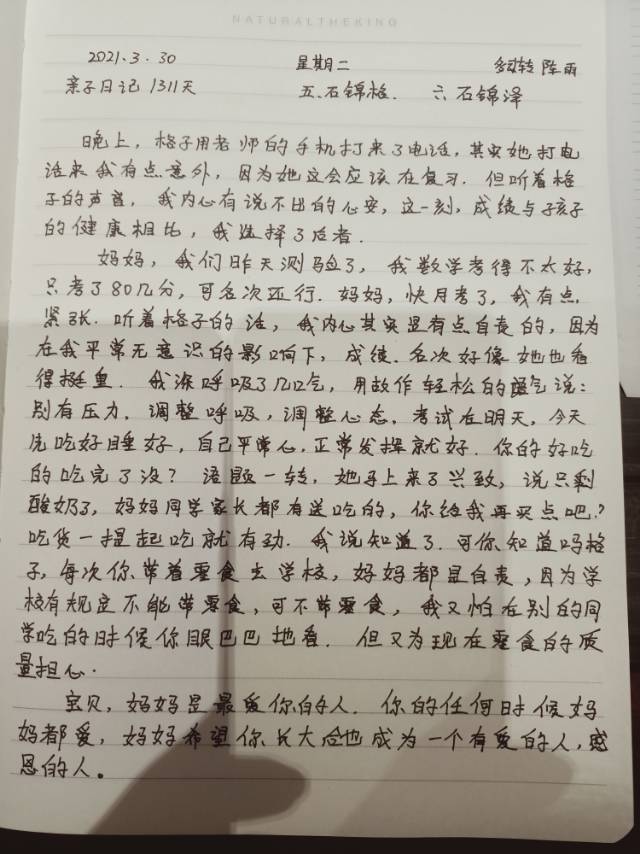 NATURALTHEKING
2021.3.30 星期二 陈雨
亲子日记 1311天 五.石锦格. 六 石锦泽
晚上，格子用老师的手机打来了电话，其实她打电
话来我有点意外，因为她这会应该在复习.但听着格
子的声音，我内心有说不出的心安，这一刻，成绩与孩子
的健康相比，我选择了后者.
妈妈，我们昨天测验了，我数学考得不太好，
只考了80几分，可名次还行.妈妈，快月考了，我有点
紧张.听着格子的话，我内心其实是有点自责的，因为
在我平常无意识的影响下，成绩.名次好像她也看
得挺重.我深呼吸了几口气，用故作轻松的语气说：
别有压力.调整呼吸，调整心态.考试在明天，今天
先吃好睡好，自己平常心，正常发挥就好.你的好吃
的吃完了没？语题一转，她马上来了兴致，说只剩
酸奶了，妈妈同学家长都有送吃的，你给我再买点吧？
吃货一提起吃就有劲.我说知道了.可你知道吗格
子，每次你带着零食去学校，妈妈都是自责，因为学
校有规定不能带零食，可不带零食，我又怕在别的同
学吃的时候你眼巴巴地看.但又为现在零食的质
量担心.
宝贝，妈妈是最爱你的人.你的任何时候妈
妈都爱，妈妈希望你长大后也成为一个有爱的人，感
恩的人。